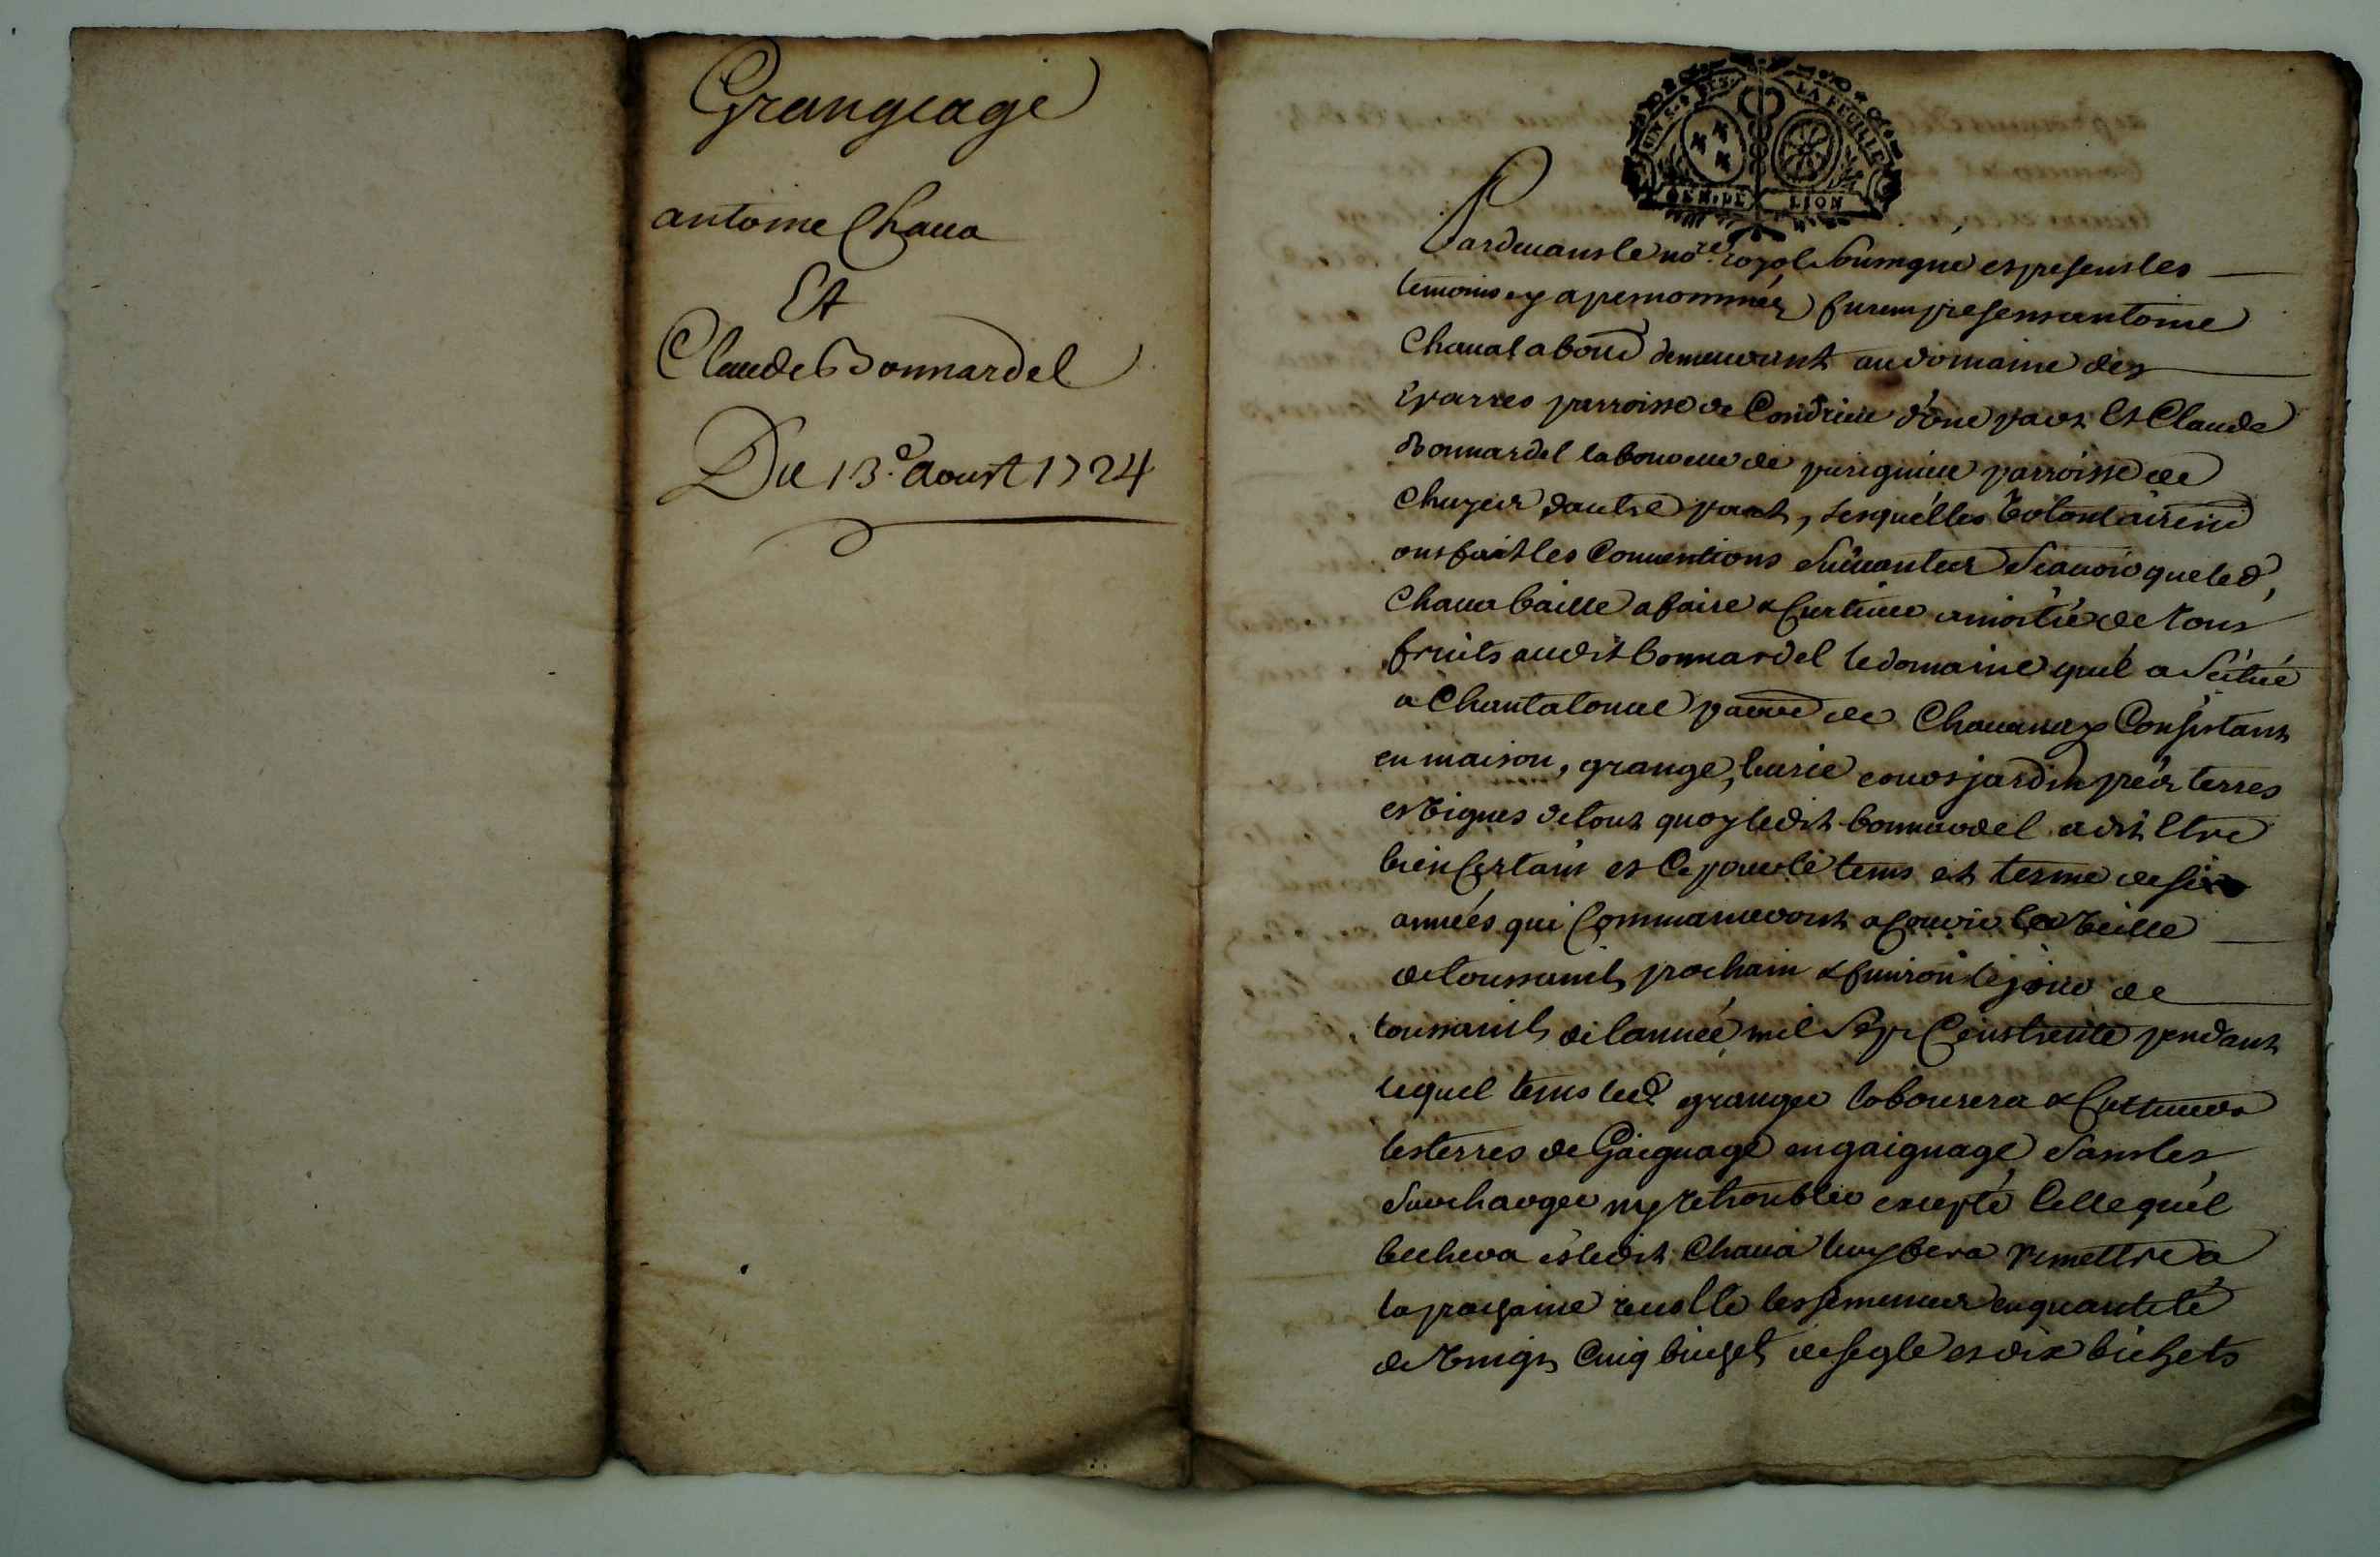 Grangeage
antoine Chaua
Et
Claude Bonnardel
Du 13.e aoust 1724
LA FEUILLE
GEN. DE LION
Pardeuant le no.re royal soussigné et presents les
temoins cy apres nommés furent presents antoine
Chaua laboure demeurant au domaine des
eparres parroisse de Condrieu d'une part Et Claude
Bonnardel laboureur de parroisse de
Chuyer dautre part, lesquelles Volontairemt
ont fait les Conuentions Suiuantes Scauoir que led,
Chaua baille a faire & Cultiuer a moitié de tous
fruits audit bonnardel le domaine quil a Scitué
a Chantaloue parre de Chauanay Consistant
en maison, grange, curie cours jardin prés terres
et Vignes de tout quoy ledit bonnardel a dit Etre
bien Certain et Ce pour le tems et terme de six
années qui Commanceront a Courir la Veille
de toussaints prochain & finiront le jour de
toussaints de lannée mil Sept Cens trente pendant
lequel tems led. granger labourera & Cultiuera
les terres de Gaignage en gaignage sans les
surcharger ny retroubler excepté Celle quil
bechera et ledit Chaua luy fera remettre a
la prochaine recolte les semences en quantité
de Vingt Cinq bichets de segle et dix bichets